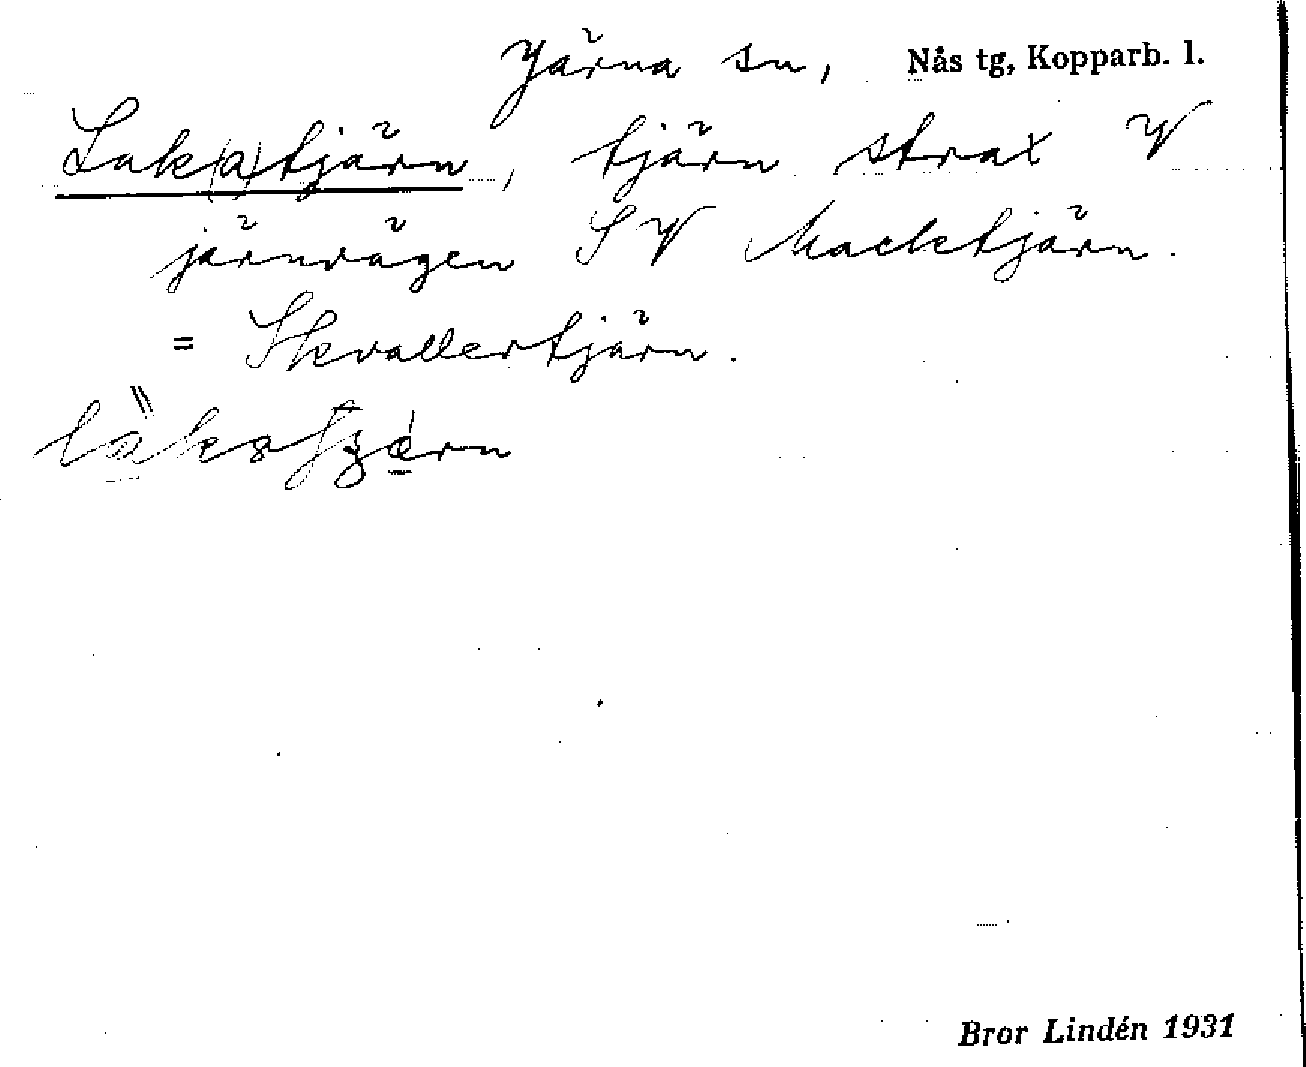 Järna sn, Nås tg, Kopparb. l.
Lak(a)tjärn, tjärn strax V
järnvägen SV Macktjärn.
= Skvallertjärn.
Bror Lindén 1931